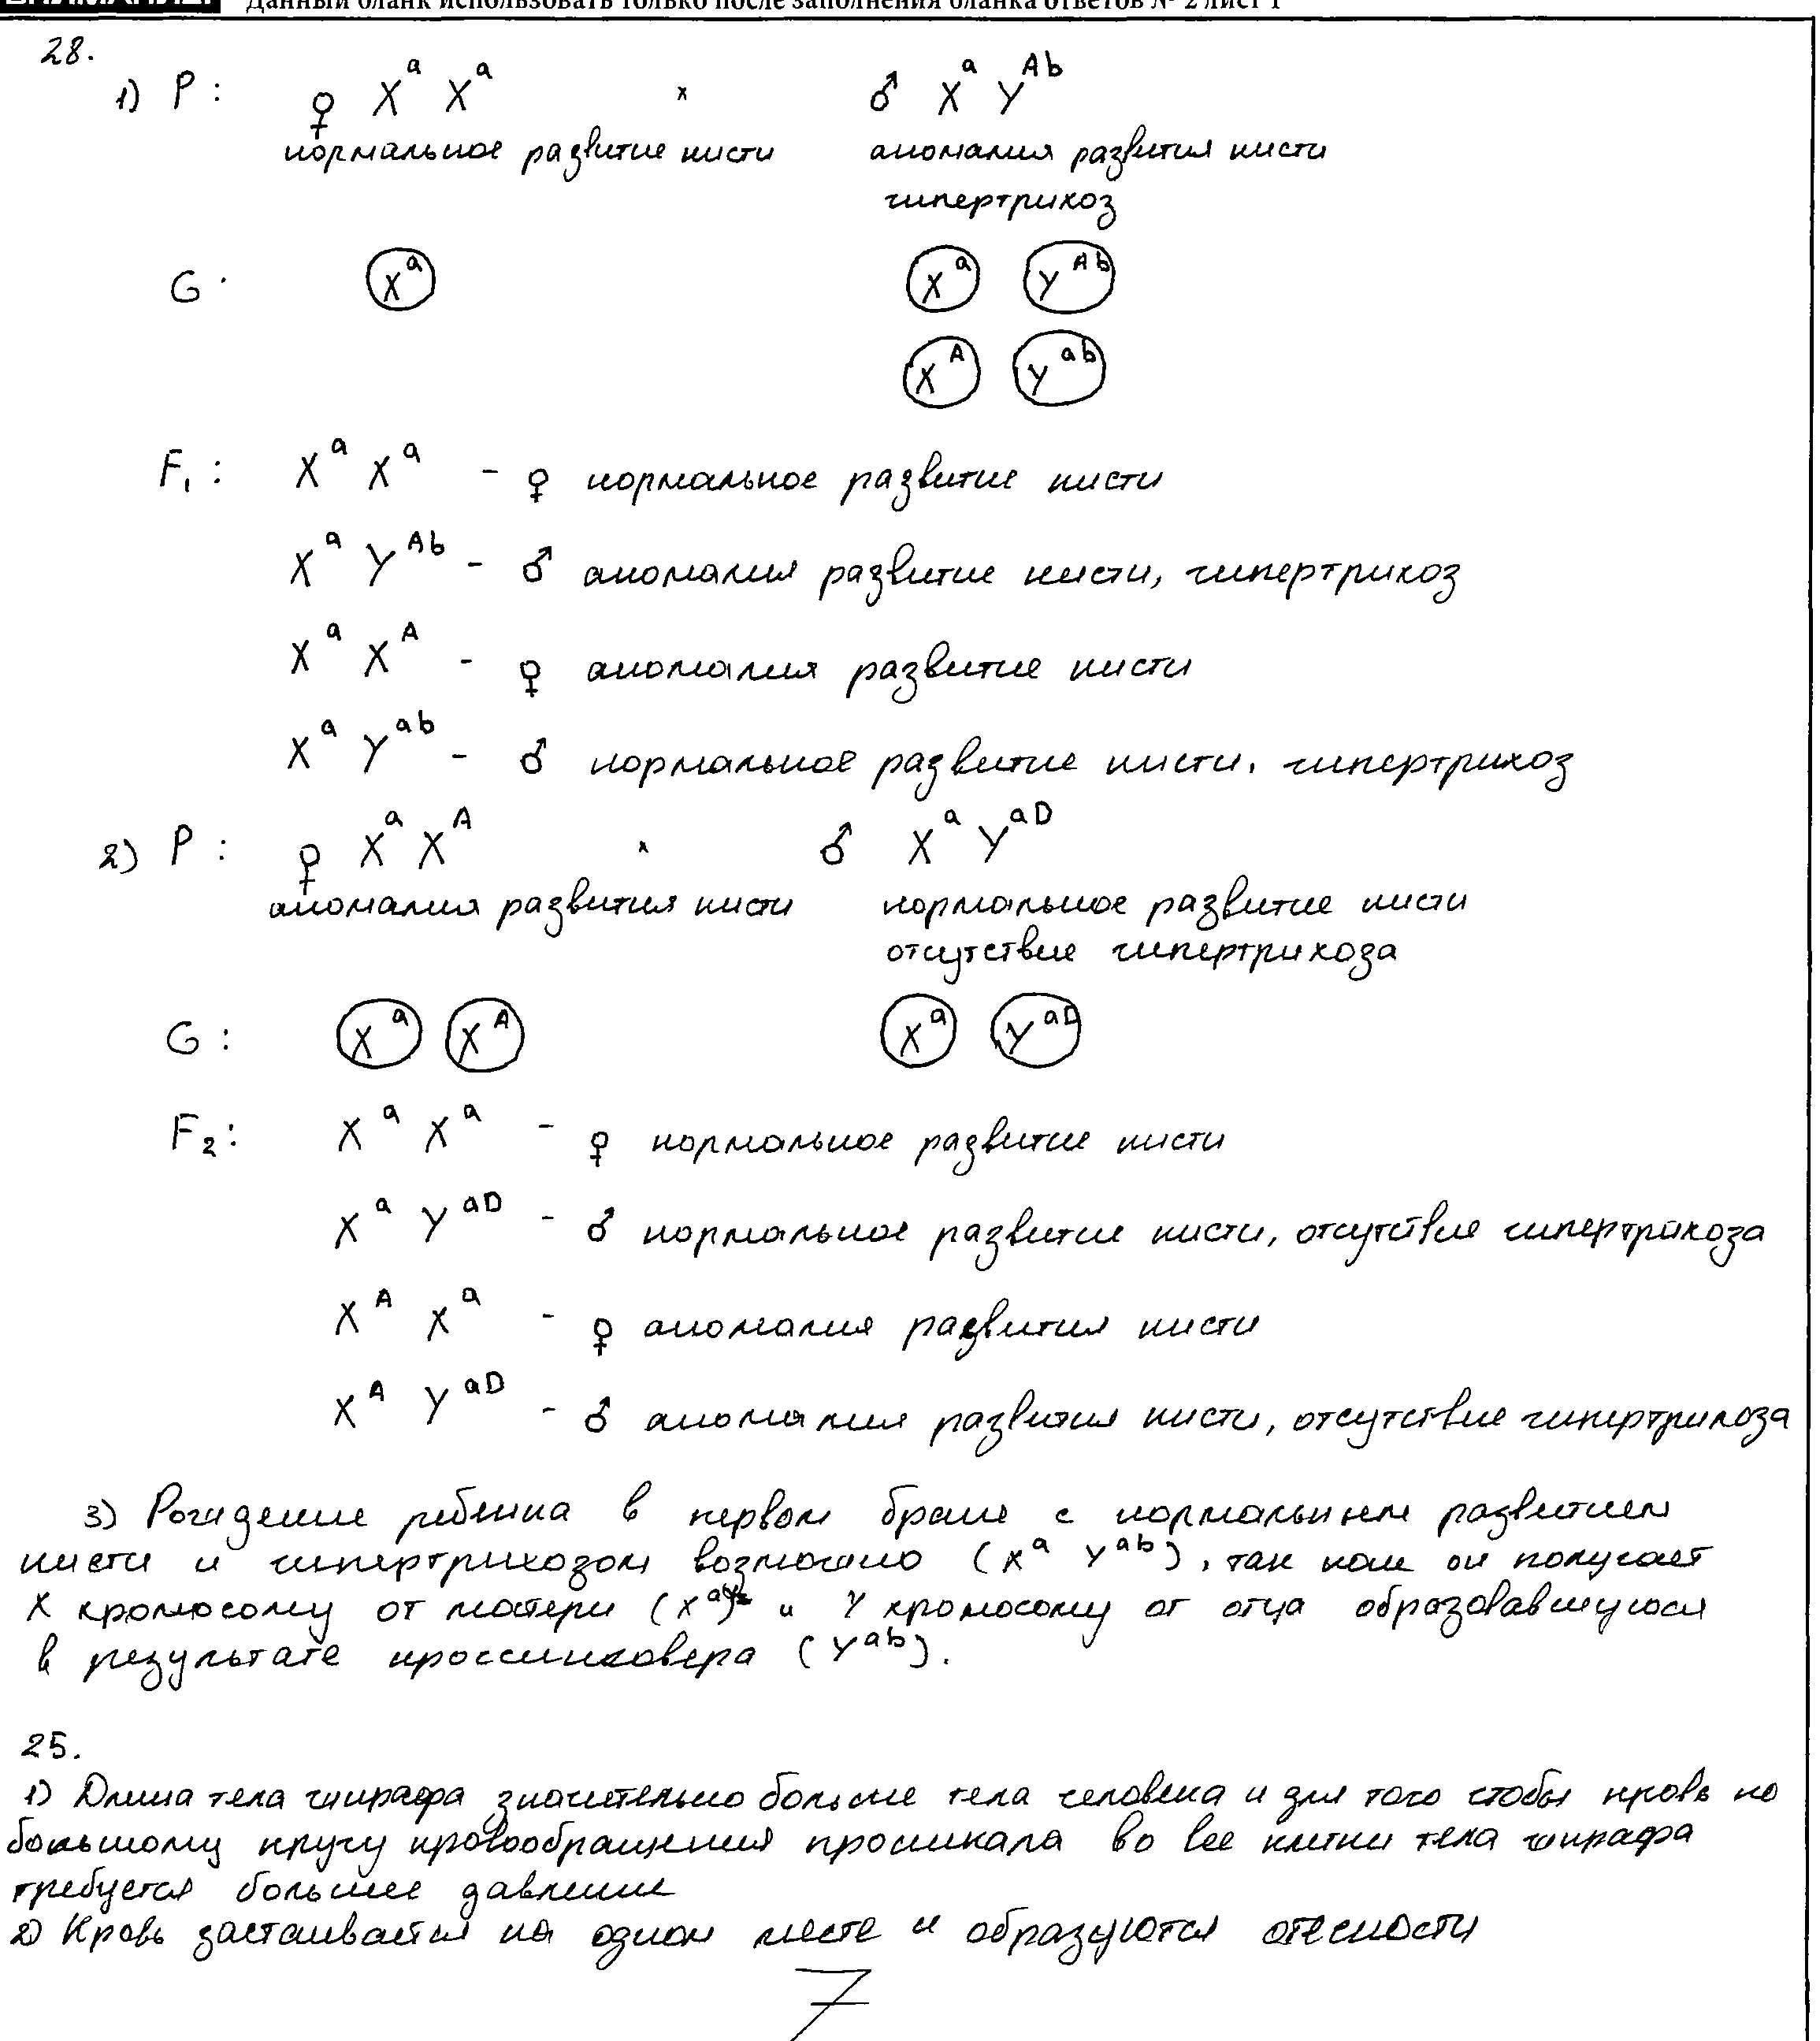 Данный бланк использовать только после заполнения бланка ответов № 2 лист 1
28.
1) P : ♀ X^a X^a x ♂ X^a Y^Ab
нормальное развитие кисти аномалия развития кисти
гипертрихоз
G : X^a X^a Y^Ab
X^A Y^ab
F₁ : X^a X^a - ♀ нормальное развитие кисти
X^a Y^Ab - ♂ аномалия развитие кисти, гипертрихоз
X^a X^A - ♀ аномалия развитие кисти
X^a Y^ab - ♂ нормальное развитие кисти, гипертрихоз
2) P : ♀ X^a X^A x ♂ X^a Y^aD
аномалия развития кисти нормальное развитие кисти
отсутствие гипертрихоза
G : X^a X^A X^a Y^aD
F₂ : X^a X^a - ♀ нормальное развитие кисти
X^a Y^aD - ♂ нормальное развитие кисти, отсутствие гипертрихоза
X^A X^a - ♀ аномалия развития кисти
X^A Y^aD - ♂ аномалия развития кисти, отсутствие гипертрихоза
3) Рождение ребенка в первом браке с нормальным развитием
кисти и гипертрихозом возможно (X^a Y^ab), так как он получает
X хромосому от матери (X^a) и Y хромосому от отца образовавшуюся
в результате кроссинговера (Y^ab).
25.
1) Длина тела жирафа значительно больше тела человека и для того чтобы кровь по
большому кругу кровообращения проникала во все клетки тела жирафа
требуется большее давление
2) Кровь застаивается на одном месте и образуются отечности